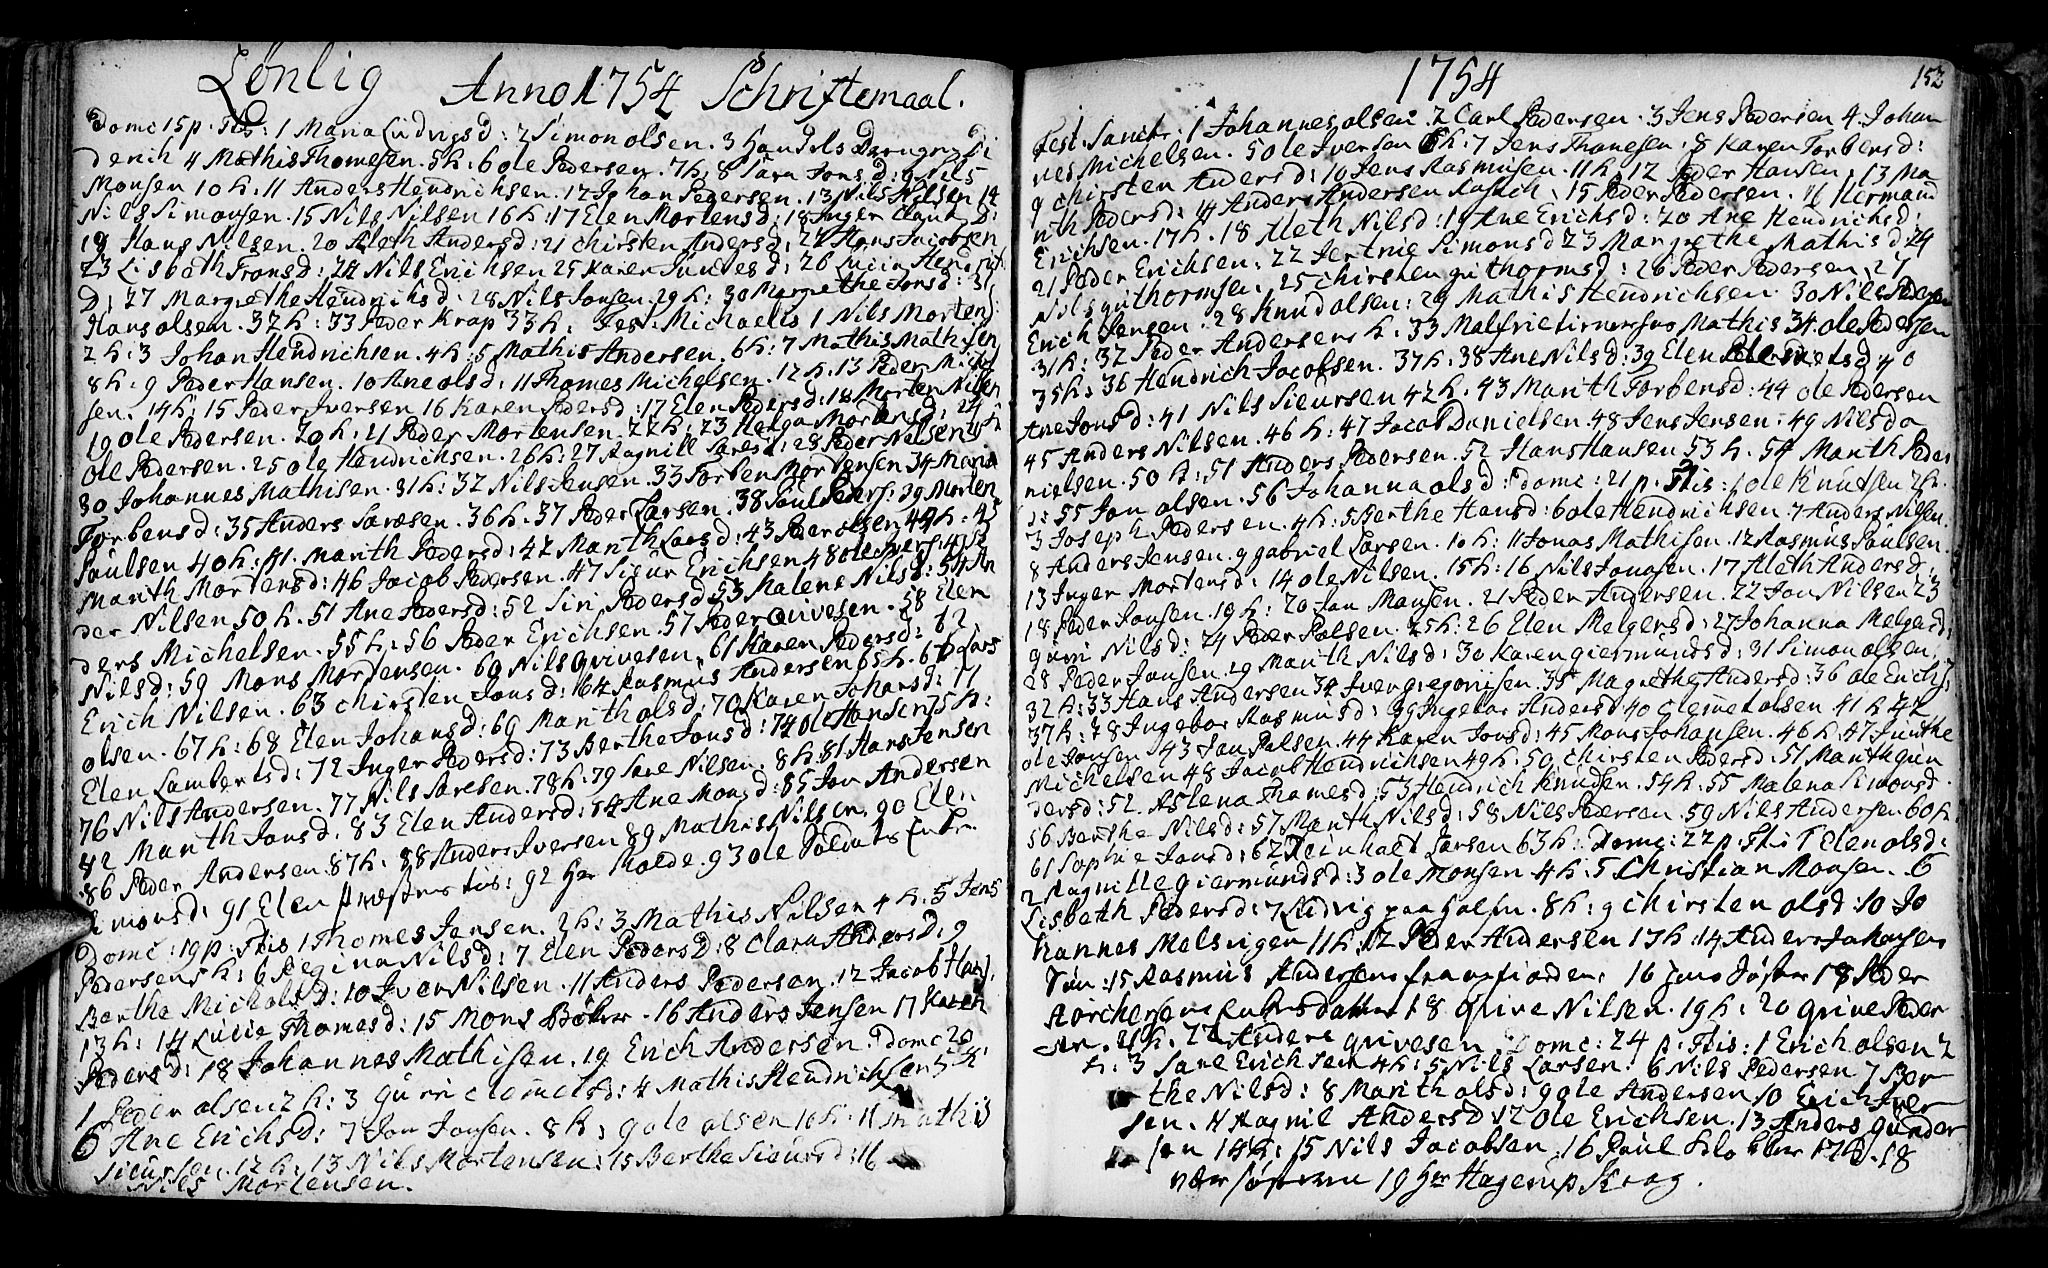 Lønlig Anno 1754 Schriftemaal.
Domc 15 p. Ttis: 1 Maria Ludvigsd: 2 Simon olsen. 3
derich 4 Mathis Thomesen. 5 h: 6 ole Pedersen. 7 h: 8 Sara Jonsd: 9 Nils
Monsen 10 h: 11 Anders Hendrichsen. 12 Johan Pedersen. 13 Nils Nilsen 14
Nils Simonsen. 15 Nils Nilsen 16 h: 17 Elen Mortensd: 18 Inger
19 Hans Nilsen. 20 Aleth Andersd: 21 Chirsten Andersd: 22 Hans Jacobsen
23 Lisbeth Fransd: 24 Nils Erichsen 25 Karen 26 Lucia Hendrich
D: 27 Margrethe Hendrichsd: 28 Nils Jonsen. 29 h: 30 Margrethe Jonsd: 31
Hans olsen. 32 h: 33 Peder Krap 33 h. Fest: Michaelis 1 Nils Mortens:
2 h: 3 Johan Hendrichsen. 4 h: 5 Mathis Andersen. 6 h: 7 Mathis Mathisen
8 h: 9 Peder Hansen. 10 Ane olsd: 11 Thomes Michelsen. 12 h: 13 Peder Michel
sen. 14 h: 15 Peder Iversen 16 Karen Pedersd: 17 Elen Pedersd: 18 Morten Nilsen
19 ole Pedersen. 20 h: 21 Peder Mortensen. 22 h: 23 Helga Mortensd: 24
Ole Pedersen. 25 ole Hendrichsen. 26 h: 27 Ragnill Saresd: 28 Peder Nilsen
30 Johannes Mathisen. 31 h: 32 Nils Jensen. 33 Torben Mortensen 34 Maria
Torbensd: 35 Anders Saresen. 36 h. 37 Peder Larsen. 38 Paul Peders: 39 Morten
Paulsen 40 h: 41. Marith Pedersd: 42 Marith Larsd: 43 Peder olsen 44 h: 45
Marith Mortensd: 46 Jacob Pedersen. 47 Sigur Erichsen 48 ole Ivers: 49
der Nilsen 50 h. 51 Ane Pedersd: 52 Siri Pedersd 53 Malene Nilsd: 54 An
ders Michelsen. 55 h: 56 Peder Erichsen. 57 Peder Qvivesen. 58 Elen
Nilsd: 59 Mons Mortensen. 60 Nils qvivesen. 61 Karen Pedersd: 62
Erich Nilsen. 63 Chirsten Jonsd: 64 Rasmus Andersen 65 h: 66 Lars
olsen. 67 h: 68 Elen Johansd: 69 Marith olsd: 70 Karen Johansd: 71
Elen Lambertsd: 72 Inger Pedersd: 73 Berthe Jonsd: 74 ole Hansen 75 h:
76 Nils Andersen. 77 Nils Saresen. 78 h: 79 Sare Nilsen. 8 h. 81 Hans Jensen
82 Marith Jonsd: 83 Elen Andersd: 84 Ane Monsd: 85 Jon Andersen
86 Peder Andersen. 87 h: 88 Anders Iversen 89 Mathis Nilsen. 90 Elen
Simonsd: 91 Elen 92 Hr Molde. 93 ole Soldats
Domc: 19 p: Ttis 1 Thomes Jensen. 2 h: 3 Mathis Nilsen 4 h. 5 Jens
Pedersen h: 6 Regina Nilsd: 7 Elen Pedersd: 8 Clara Andersd: 9
Berthe Michelsd: 10 Iver Nilsen. 11 Anders Pedersen. 12 Jacob Hans:
13 h: 14 Lucie Thomesd: 15 Mons 16 Anders Jensen 17 Karen
Pedersd: 18 Johannes Mathisen. 19 Erich Andersen. Domc 20
1 Peder olsen 2 h: 3 Guri Clemetsd: 4 Mathis Hendrichsen 5 h:
6 Ane Erichsd: 7 Jon Jonsen. 8 h: 9 ole olsen 10 h: 11 Mathis
Sieursen. 12 h: 13 Nils Mortensen: 15 Berthe Sieursd: 16
Nils Mortensen.
1754
152
Fest: Sanct: 1 Johannes olsen 2 Carl Pedersen. 3 Jens Pedersen 4 Johan
nes Michelsen. 5 ole Iversen 6 h: 7 Jens Thomesen. 8 Karen Torbensd:
9 Chirsten Andersd: 10 Jens Rasmusen. 11 h: 12 Peder Hansen. 13 Ma
rith Pedersd: 14 Anders Andersen Rasch. 15 Peder Pedersen. 16 Hermand
Erichsen. 17 h. 18 Aleth Nilsd: 19 Ane Erichsd: 20 Ane Hendrichsd:
21 Peder Erichsen: 22 Jertrue Simonsd 23 Margrethe Mathisd 24
Nils guthormsen. 25 Chirsten guthormsd: 26 Peder Pedersen. 27
Erich Jensen. 28 Knud olsen: 29 Mathis Hendrichsen. 30 Nils Peders
31 h: 32 Peder Andersen h: 33 Mathis 34 ole Pedersen
35 h: 36 Hendrich Jacobsen. 37 h: 38 Ane Nilsd: 39 Elen 40
Ane Jonsd: 41 Nils Sieursen 42 h. 43 Marith Torbensd: 44 ole Pedersen
45 Anders Nilsen. 46 h: 47 Jacob Danielsen. 48 Jens Jensen. 49 Nils da
nielsen. 50 h: 51 Anders Pedersen. 52 Hans Hansen 53 h. 54 Marith Peder
d: 55 Jon olsen. 56 Johanna olsd: Domc: 21 p. Ttis: 1 ole Knutsen 2 h.
3 Joseph Pedersen. 4 h: 5 Berthe Hansd: 6 ole Hendrichsen. 7 Anders Nilsen.
8 Anders Jensen. 9 gabriel Larsen. 10 h: 11 Jonas Mathisen. 12 Rasmus Paulsen.
13 Inger Mortensd: 14 ole Nilsen. 15 h: 16 Nils Jonsen. 17 Aleth Andersd:
18 Peder Jonsen. 19 h: 20 Jon Monsen. 21 Peder Andersen. 22 Jon Nilsen 23
guri Nilsd: 24 Peder Polsen. 25 h: 26 Elen Melgersd: 27 Johanna Melgersd:
28 Peder Jonsen. 29 Marith Nilsd: 30 Karen giermundsd: 31 Simon olsen.
32 h: 33 Hans Andersen 34 Iver gregorisen. 35 Magrethe Andersd: 36 ole Erichs:
37 h: 38 Ingebor Rasmusd: 39 Ingebor Andersd 40 Clemet olsen 41 h 42
ole Jonsen 43 Jon Polsen. 44 Karen Jonsd: 45 Mons Johansen. 46 h: 47
Michelsen 48 Jacob Hendrichsen 49 h: 50 Chirsten Pedersd: 51 Marith gun
dersd: 52 Aslena Thomesd: 53 Hendrich Knudsen. 54 h: 55 Malena Simonsd.
56 Berthe Nilsd: 57 Marith Nilsd: 58 Nils Pedersen. 59 Nils Andersen. 60 h
61 Sophie Jonsd: 62 Reinholt Larsen 63 h: Domc: 22 p. Ttis 1 Elen olsd:
2 Ragnille giermundsd: 3 ole Monsen 4 h: 5 Christian Monsen. 6
Lisbeth Pedersd: 7 Ludvig paa 8 h: 9 Chirsten olsd: 10 Jo
hannes Malsingen 11 h: 12 Peder Andersen 13 h: 14 Anders Johansen
15 Rasmus Andersens 16 18 Peder
18 Qvive Nilsen. 19 h: 20 qvive Peder
sen. 21 h. 22 Anders qvivesen. Domc: 24 p: Ttis: 1 Erich olsen 2
h: 3 Sare Erichsen 4 h: 5 Nils Larsen. 6 Nils Pedersen 7 Ber
the Nilsd: 8 Marith olsd: 9 ole Andersen 10 Erich Iver
sen. 11 Ragnil Andersd 12 Ole Erichsen. 13 Anders gunder
sen 14 h: 15 Nils Jacobsen. 16 Paul 17 h. 18
19 Hr Hagerup Krog.